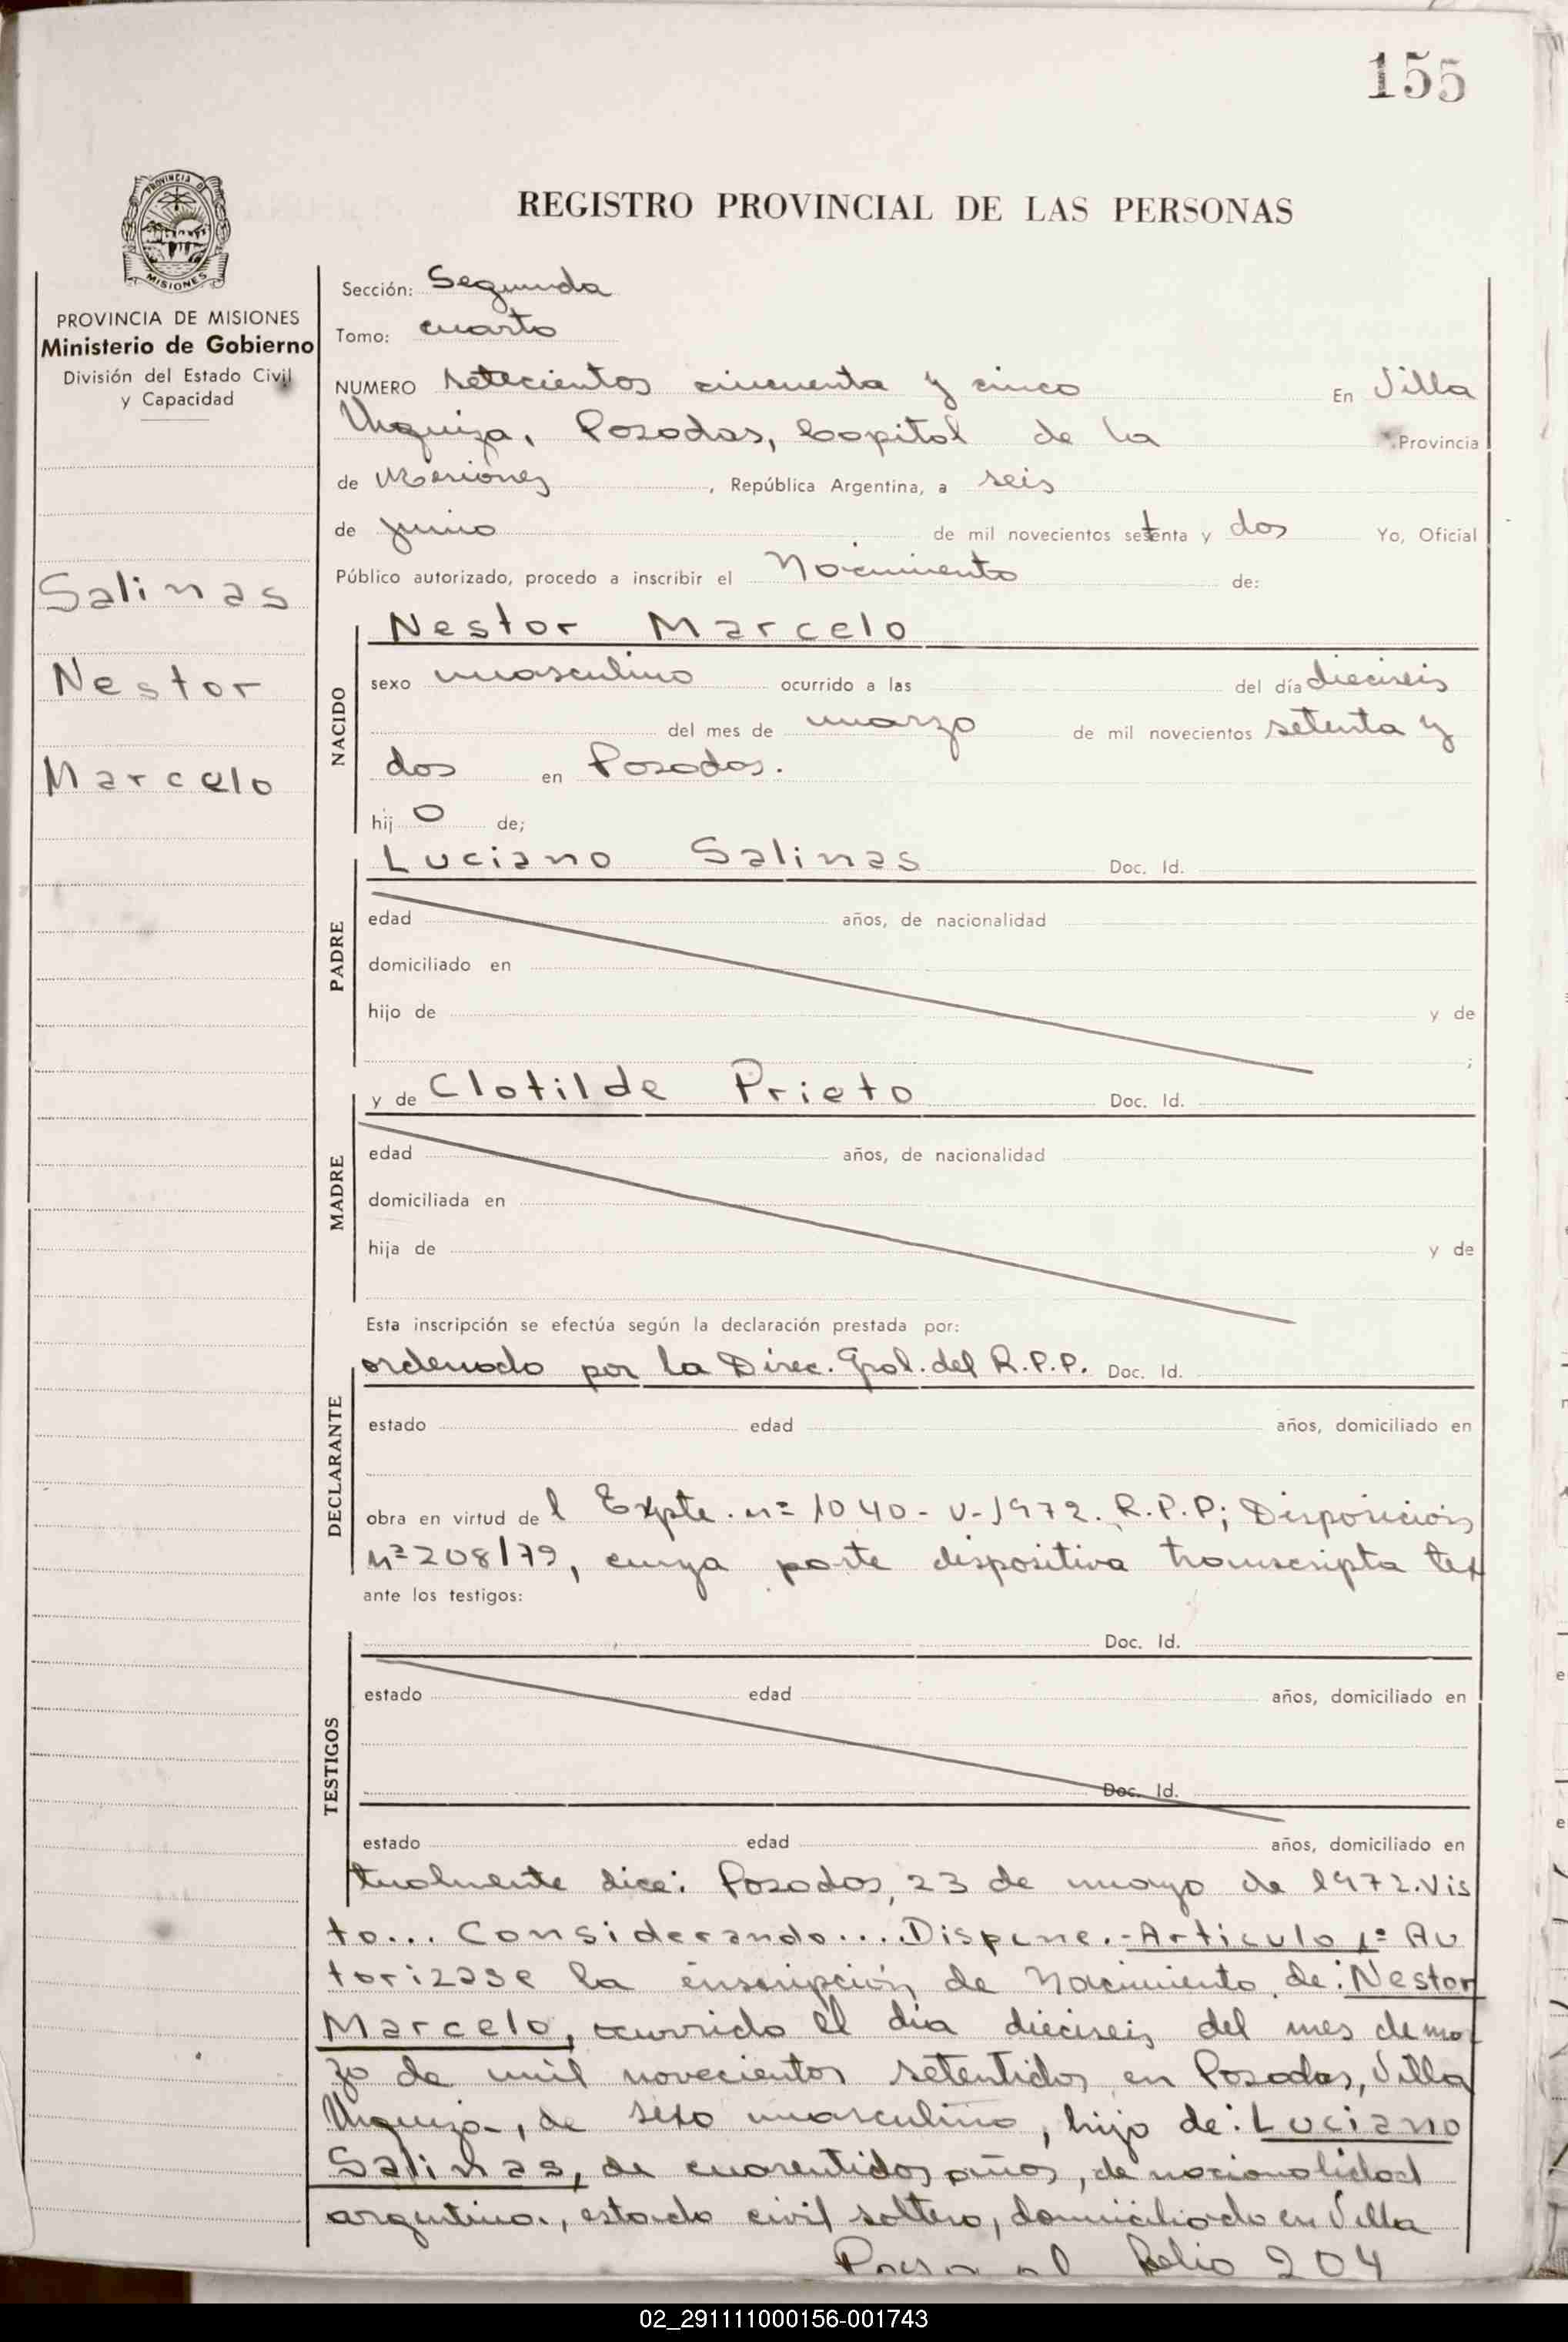 155
REGISTRO PROVINCIAL DE LAS PERSONAS
PROVINCIA DE MISIONES
Ministerio de Gobierno
División del Estado Civil
y Capacidad
Salinas
Nestor
Marcelo
Sección: Segunda
Tomo: cuarto
NUMERO setecientos cincuenta y cinco En Villa
Urquiza, Posadas, Capital de la Provincia
de Misiones, República Argentina, a seis
de junio de mil novecientos setenta y dos Yo, Oficial
Público autorizado, procedo a inscribir el Nacimiento de:
NACIDO
Nestor Marcelo
sexo masculino ocurrido a las del día dieciseis
del mes de marzo de mil novecientos setenta y
dos en Posadas.
hij o de;
PADRE
Luciano Salinas Doc. Id.
edad años, de nacionalidad
domiciliado en
hijo de y de
;
MADRE
y de Clotilde Prieto Doc. Id.
edad años, de nacionalidad
domiciliada en
hija de y de
Esta inscripción se efectúa según la declaración prestada por:
DECLARANTE
ordenado por la Direc. Gral. del R.P.P. Doc. Id.
estado edad años, domiciliado en
obra en virtud de l Expte. nº 1040-V-1972. R.P.P; Disposición
nº 208/72, cuya parte dispositiva transcripta tex
ante los testigos:
TESTIGOS
Doc. Id.
estado edad años, domiciliado en
Doc. Id.
estado edad años, domiciliado en
tualmente dice: Posadas, 23 de mayo de 1972. Vis
to... Considerando.... Dispone.- Articulo 1º Au
torizase la inscripción de Nacimiento de: Nestor
Marcelo, ocurrido el dia dieciseis del mes de mar
zo de mil novecientos setentidos en Posadas, Villa
Urquiza, de sexo masculino, hijo de: Luciano
Salinas, de cuarentidos años, de nacionalidad
argentina, estado civil soltero, domiciliado en Villa
Pasa al folio 204
02_291111000156-001743